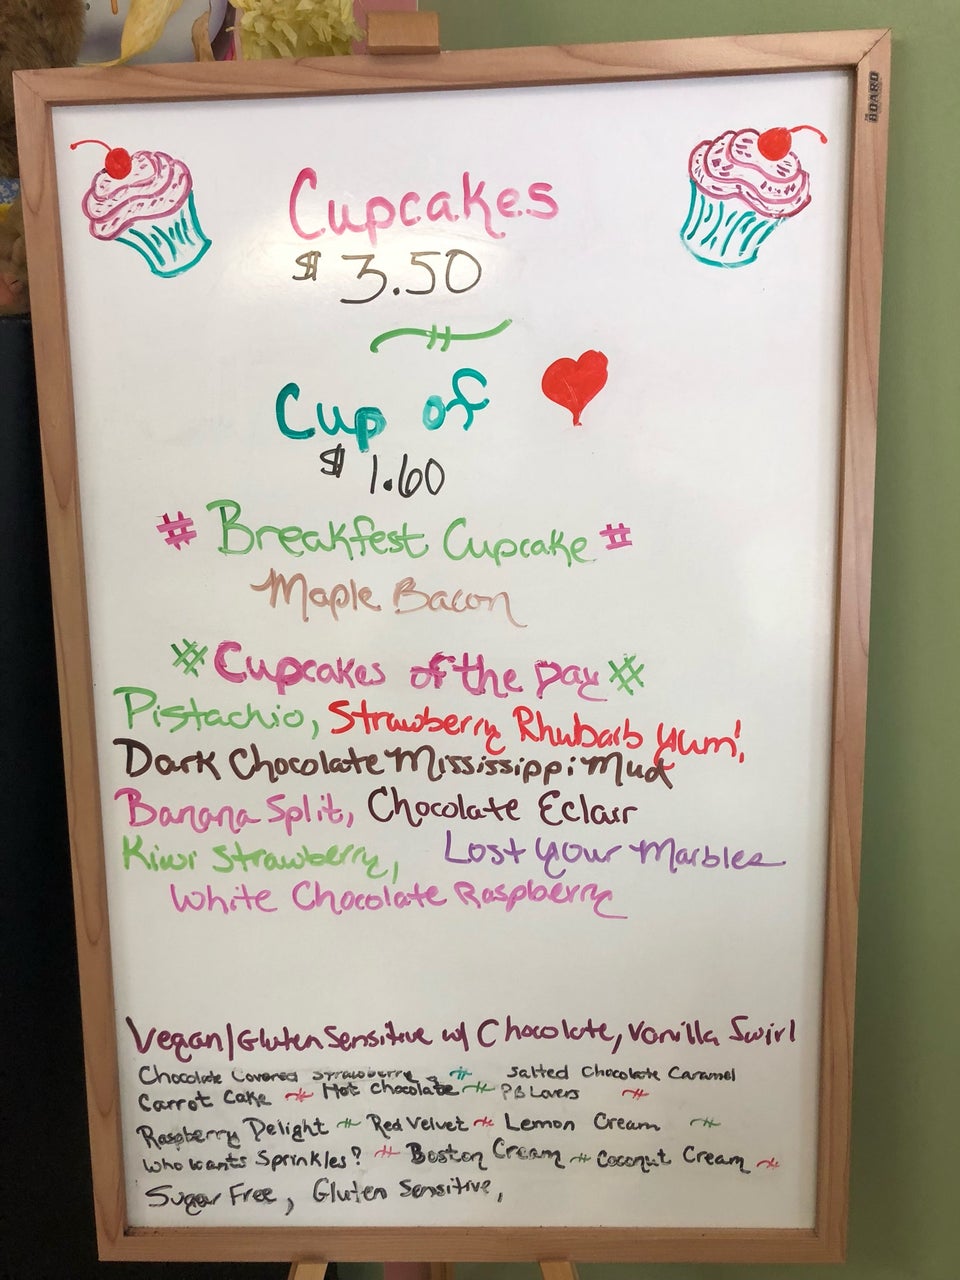 THE BOARD
Cupcakes
$3.50
Cup of
$1.60
# Breakfest Cupcake #
Maple Bacon
# Cupcakes of the Day #
Pistachio, Strawberry Rhubarb Yum!,
Dark Chocolate Mississippi Mud
Banana Split, Chocolate Eclair
Kiwi Strawberry, Lost Your Marbles
White Chocolate Raspberry
Vegan/Gluten Sensitive w/ Chocolate, Vanilla Swirl
Chocolate Covered Strawberry # Salted Chocolate Caramel
Carrot Cake # Hot Chocolate # PB Lovers #
Raspberry Delight # Red Velvet # Lemon Cream #
Who Wants Sprinkles? # Boston Cream # Coconut Cream #
Sugar Free, Gluten Sensitive,